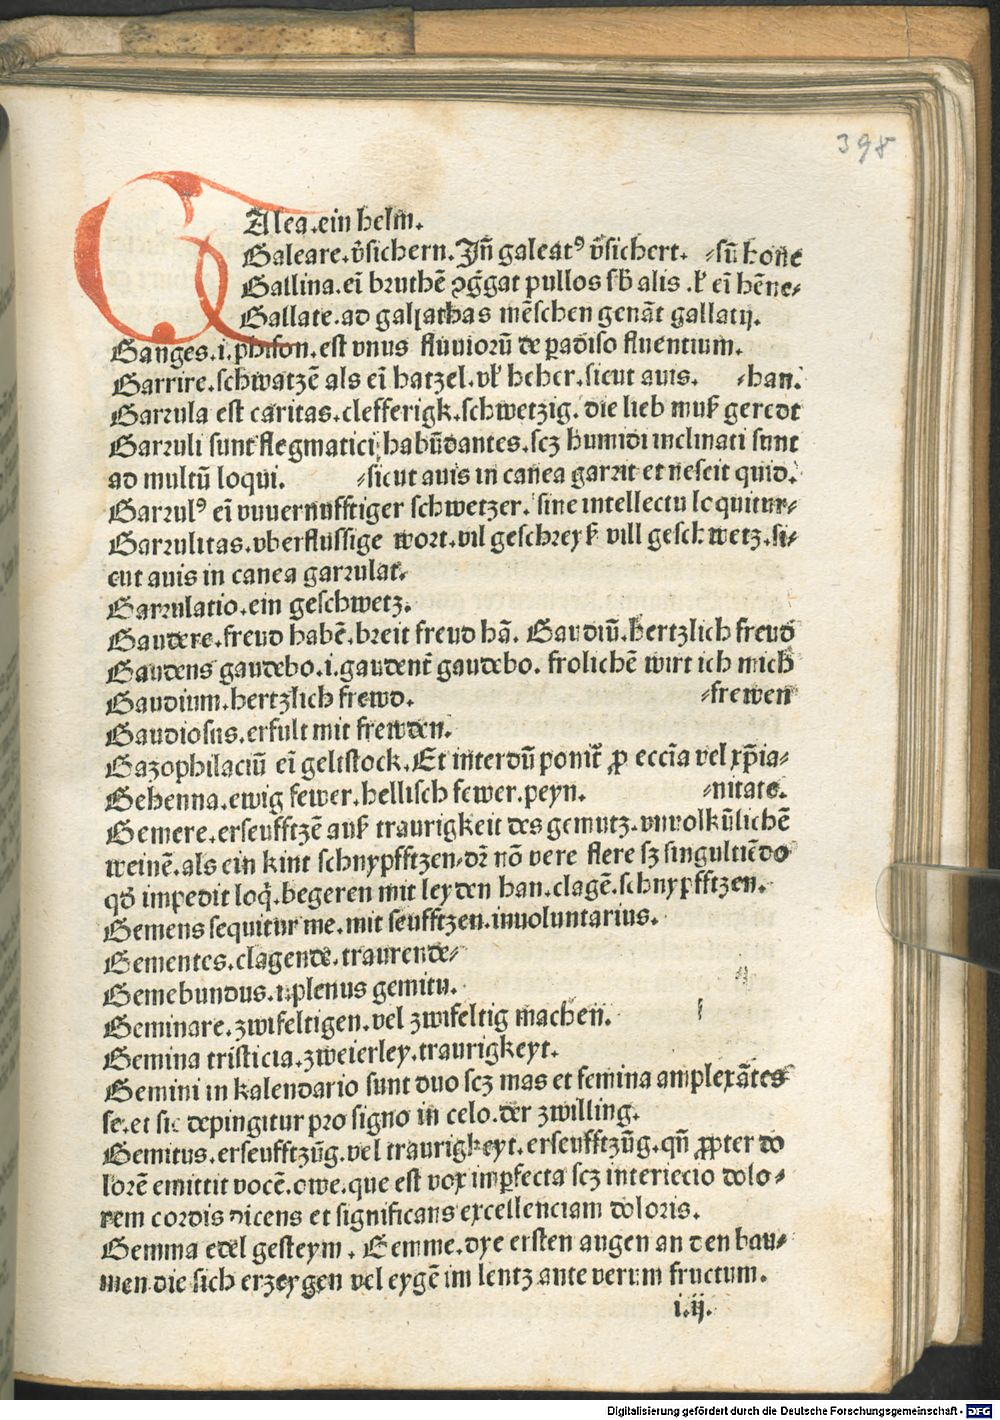 398
GAlea.ein helm.
Galeare.v̄sichern. Jn̄ galeatꝰ v̄sichert. ⸗sū hoñe
Gallina.ei̅ bruthē ꝯg̅gat pullos sb̄ alis .ł ei̅ hēne⸗
Gallate.ad galjathas mēschen genāt gallatij.
Ganges.i.phison.est vnus fluuiorū de ꝑadiso fluentium.
Garrire.schwatzē als ei̅ hatzel.vł heher.sicut auis. ⸗han.
Garrula est caritas.clefferigk.schwetzig. die lieb muß geredt
Garruli sunt flegmatici habūdantes.scz humidi inclinati sunt
ad multū loqui. ⸗sicut auis in cauea garrit et nescit quid.
Garrulꝰ ei̅ vnuernufftiger schwetzer. sine intellectu loquitur⸗
Garrulitas.vberflussige wort.vil geschreyß vill geschwetz.si⸗
cut auis in cauea garrulat.
Garrulatio.ein geschwetz.
Gaudere.freud habē.breit freud hā. Gaudiū.hertzlich freud
Gaudens gaudebo.i.gaudent̄ gaudebo. frolichē wirt ich mich
Gaudium.hertzlich frewd. ⸗frewen
Gaudiosus.erfult mit frewden.
Gazophilaciū ei̅ geltstock.Et interdū ponit̄ ꝓ eccīa vel xp̄ia⸗
Gehenna.ewig fewer.hellisch fewer.peyn. ⸗nitate.
Gemere.erseufftzē auß traurigkeit des gemutz.vnuolkūlichē
weinē.als ein kint schnypfftzen.dr̄ nō vere flere sz singultiēdo
qđ impedit loq̄.begeren mit leyden han.clagē.schnypfftzen.
Gemens sequitur me.mit seufftzen.inuoluntarius.
Gementes.clagende.traurende⸗
Gemebundus.i.plenus gemitu.
Geminare.zwifeltigen.vel zwifeltig machen.
Gemina tristicia.zweierley.traurigkeyt.
Gemini in kalendario sunt duo scz mas et femina amplexātes
se.et sic depingitur pro signo in celo.der zwilling.
Gemitus.erseufftzūg.vel traurigkeyt.erseufftzūg.qn̄ ꝓpter do
lorē emittit vocē.owe.que est vox imꝑfecta scz interiecio dolo⸗
rem cordis dicens et significans excellenciam doloris.
Gemma edel gesteym . Gemme.dye ersten augen an den bau⸗
men.die sich erzeygen vel eygē im lentz ante verum fructum.
i.ij.
Digitalisierung gefördert durch die Deutsche Forschungsgemeinschaft - DFG